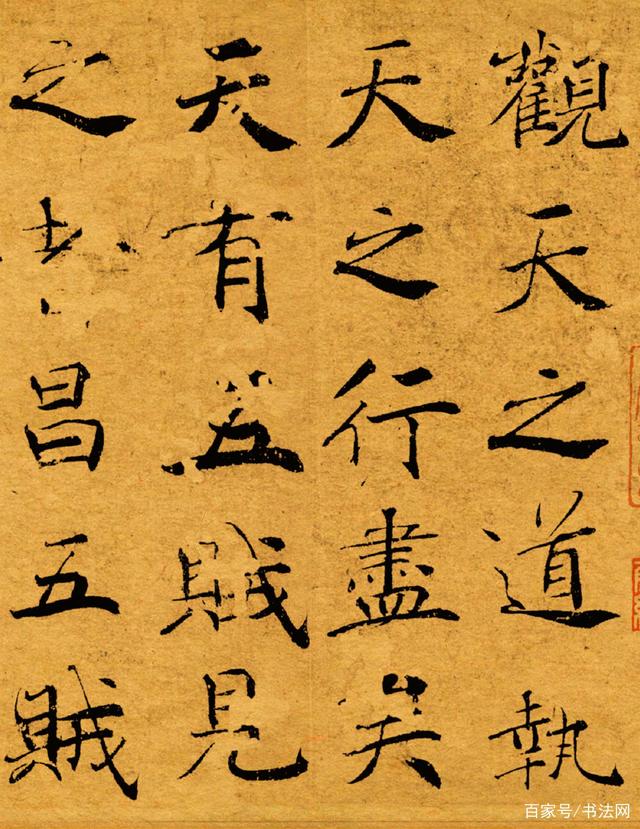 觀天之道執
天之行盡矣
天有五賊見
之者昌五賊
百家号/书法网